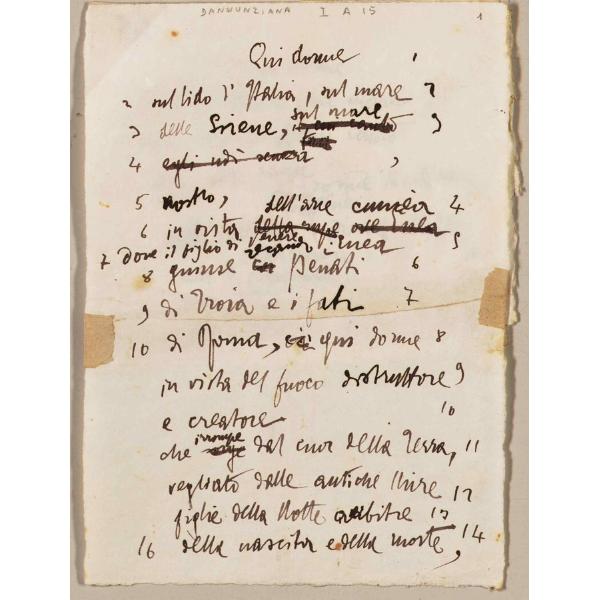 DANNUNZIANA I A 15 1
Qui dorme 1
2 sul lido d'Italia, sul mare 2
3 delle Sirene, sul mare 3
4 egli udì senza ,
5 nostro, dell'arce cumèa 4
6 in vista
7 dove il figlio di Venere recando i 5
8 giunse Penati 6
9 di Troia e i fati 7
10 di Roma, qui dorme 8
in vista del fuoco distruttore 9
e creatore 10
che irrompe dal cuor della Terra, 11
vegliato dalle antiche Mire 12
figlie della Notte arbitre 13
16 della nascita e della morte, 14